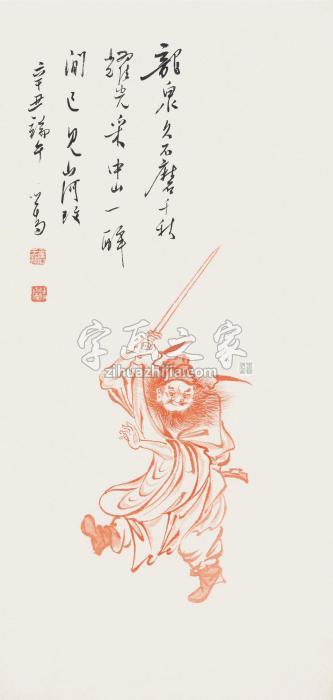 龍泉久不磨千秋
耀光采中山一醉
間已見山河改
辛丑端午 心畬
字画之家
zihuazhijia.com